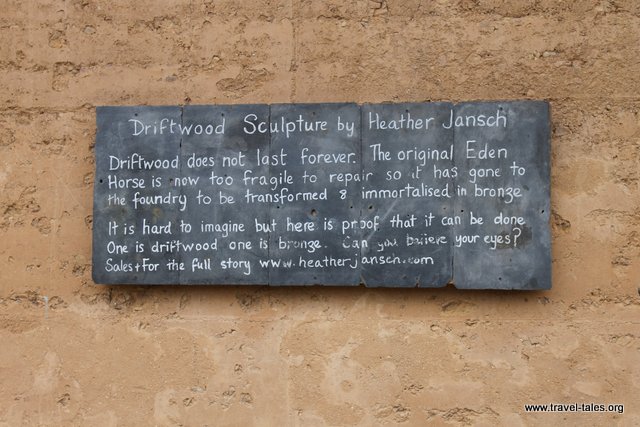 Driftwood Sculpture by Heather Jansch
Driftwood does not last forever. The original Eden
Horse is now too fragile to repair so it has gone to
the foundry to be transformed & immortalised in bronze
It is hard to imagine but here is proof that it can be done
One is driftwood one is bronze. Can you believe your eyes?
Sales + For the full story www.heatherjansch.com
www.travel-tales.org